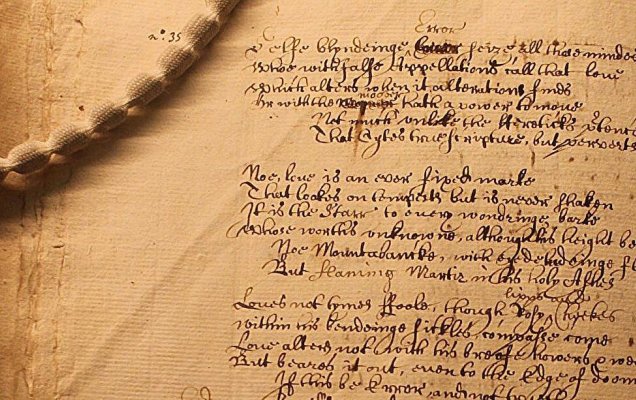 nº. 35
Error
Selfe blyndeinge seize all those minde
Whoe with false Appellations call that love
Which alters when it alterations finds
mover
Or with the hath a power to move
Not much unlike the Hereticks
That Cytes true scripture, but perverts
Noe, love is an ever fixed marke
That lookes on tempests but is never shaken
It is the Starr to every wondringe barke
Whose worth's unknowne, although his height be
Noe Mountabancke, with eyedeludeinge fl
But flaming Martir in his holy Ashes
lipps and
Loves not tymes ffoole, though Rosy Cheekes
within his bendeinge sickles, compasse come
Love alters not with his breefe howers & wee
But beares it out, even to the Edge of doom
If this be Error, and not